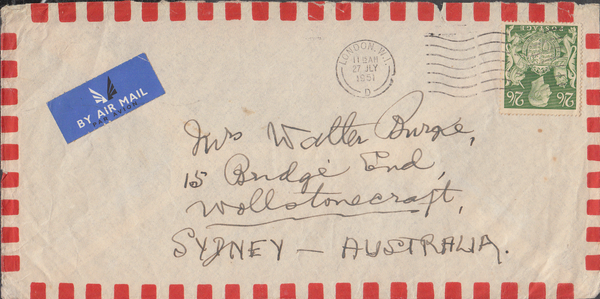 BY AIR MAIL
PAR AVION
LONDON. W.1.
11 15 AM
27 JLY
1951
D
POSTAGE
2/6 2/6
Mrs Walter Burge,
15 Bridge End,
Wollstonecraft,
SYDNEY — AUSTRALIA.